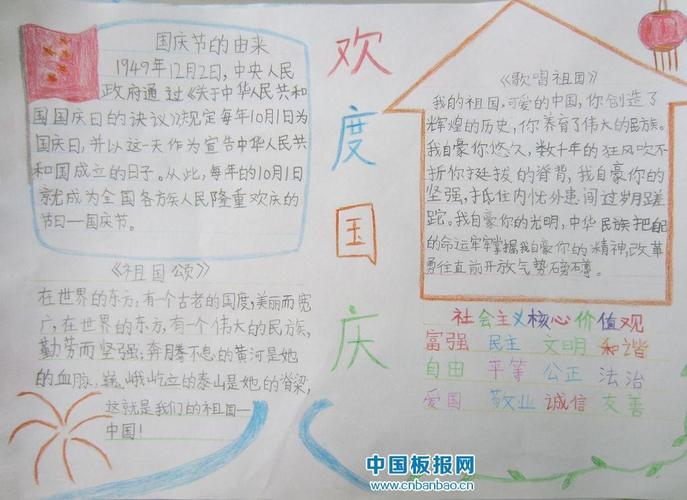 国庆节的由来
1949年12月2日，中央人民
政府通过《关于中华人民共和
国国庆日的诀议》规定每年10月1日为
国庆日，并以这一天作为宣告中华人民共
和国成立的日子。从此，每年的10月1日
就成为全国各方族人民隆重欢庆的
节日—国庆节。
《祖国颂》
在世界的东方，有一个古老的国度，美丽而宽
广，在世界的东方，有一个伟大的民族，
勤劳而坚强；奔腾不息的黄河是她
的血脉，巍峨屹立的泰山是她的脊梁，
这就是我们的祖国—
中国！
欢
度
国
庆
《歌唱祖国》
我的祖国，可爱的中国，你创造了
辉煌的历史，你养育了伟大的民族。
我自豪你悠久，数十年的狂风吹不
折你挺拔的脊背，我自豪你的
坚强，抵住内忧外患闯过岁月蹉
跎。我自豪你的光明，中华民族把自己
的命运牢牢掌握我自豪你的精神，改革
勇往直前开放气势磅礴。
社会主义核心价值观
富强 民主 文明 和谐
自由 平等 公正 法治
爱国 敬业 诚信 友善
中国板报网
www.cnbanbao.cn